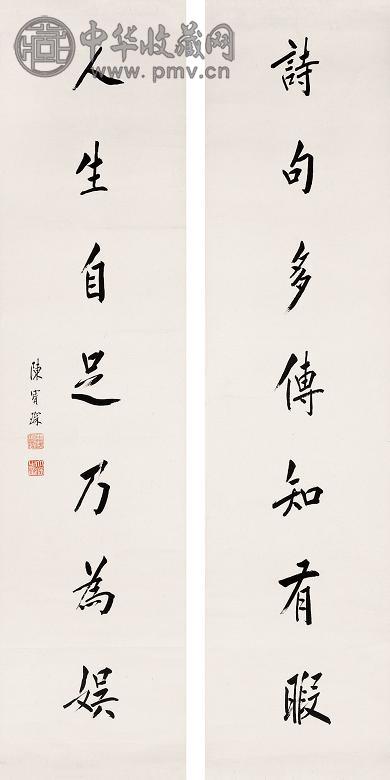 中华收藏网
www.pmv.cn
詩句多傳知有暇
人生自足乃為娱
陳寶琛